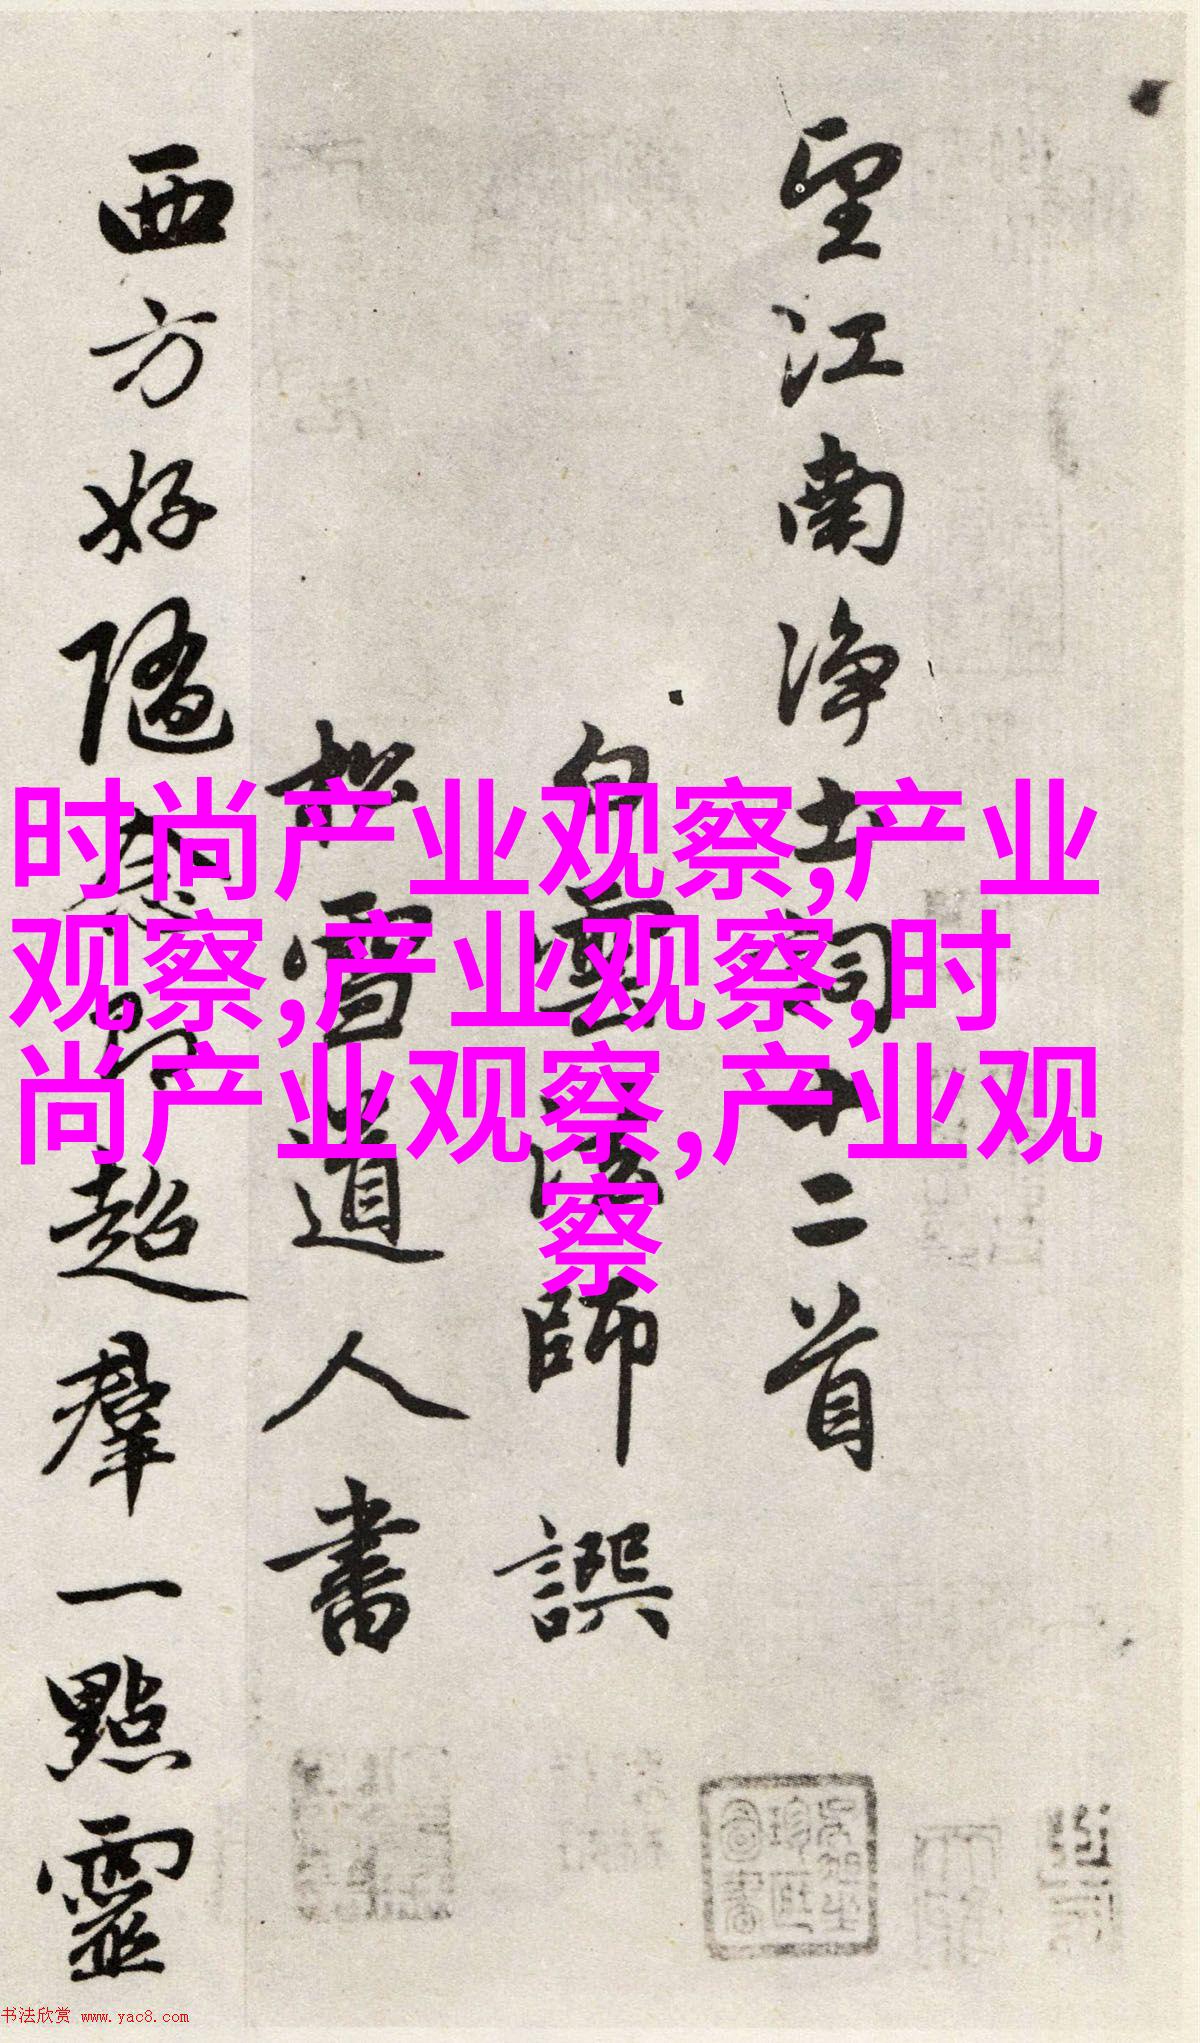 望江南淨土詞十二首
白雲法師譔
松雪道人書
西方好隨念即超羣一點靈
时尚产业观察,产业
观察,产业观察,时
尚产业观察,产业观
察
书法欣赏 www.yac8.com